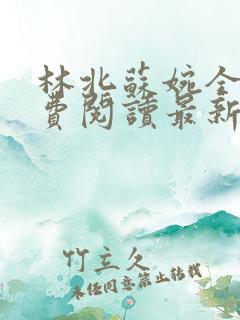 林北蘇婉全
費閱讀最新
竹立久
未经同意禁止转载